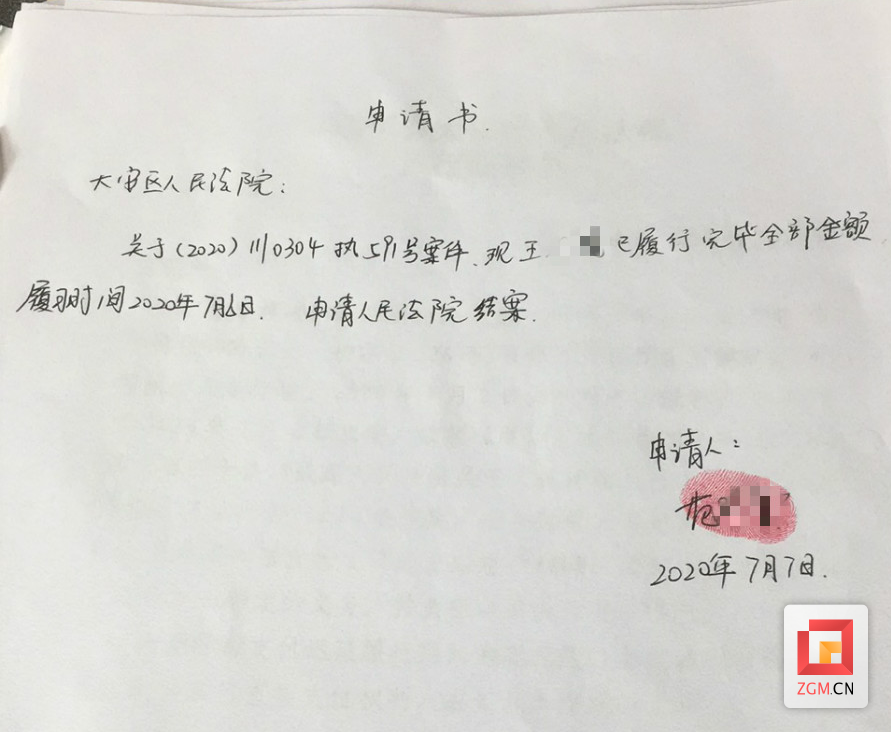 申请书.
大安区人民法院:
关于(2020)川0304执591号案件、现王 已履行完毕全部金额
履行时间2020年7月6日. 申请人民法院结案.
申请人:
2020年7月7日.
ZGM.CN